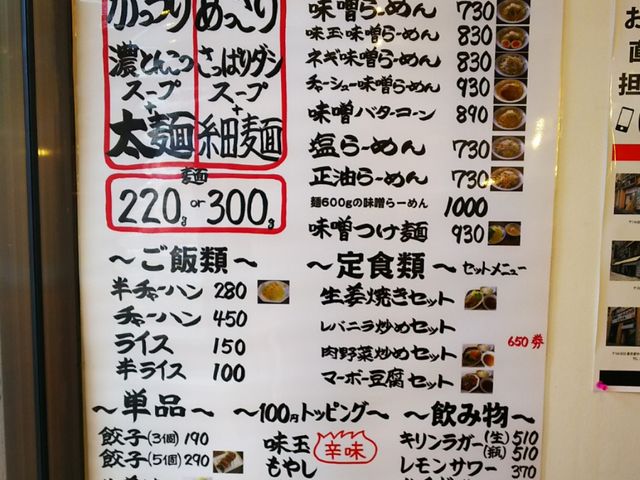 がっつり めっこり
濃とんこつ さっぱりダシ
スープ スープ
+ +
太麺 細麺
麺
220g or 300g
味噌らーめん 730
味玉味噌らーめん 830
ネギ味噌らーめん 830
チャーシュー味噌らーめん 930
味噌バターコーン 890
塩らーめん 730
正油らーめん 730
麺600gの味噌らーめん 1000
味噌つけ麺 930
～ご飯類～
半チャーハン 280
チャーハン 450
ライス 150
半ライス 100
～定食類～ セットメニュー
生姜焼きセット
レバニラ炒めセット
650券
肉野菜炒めセット
マーボー豆腐セット
～単品～
餃子(3個) 190
餃子(5個) 290
～100円トッピング～
味玉
もやし
辛味
～飲み物～
キリンラガー(生) 510
(瓶) 510
レモンサワー 370
お
直
担